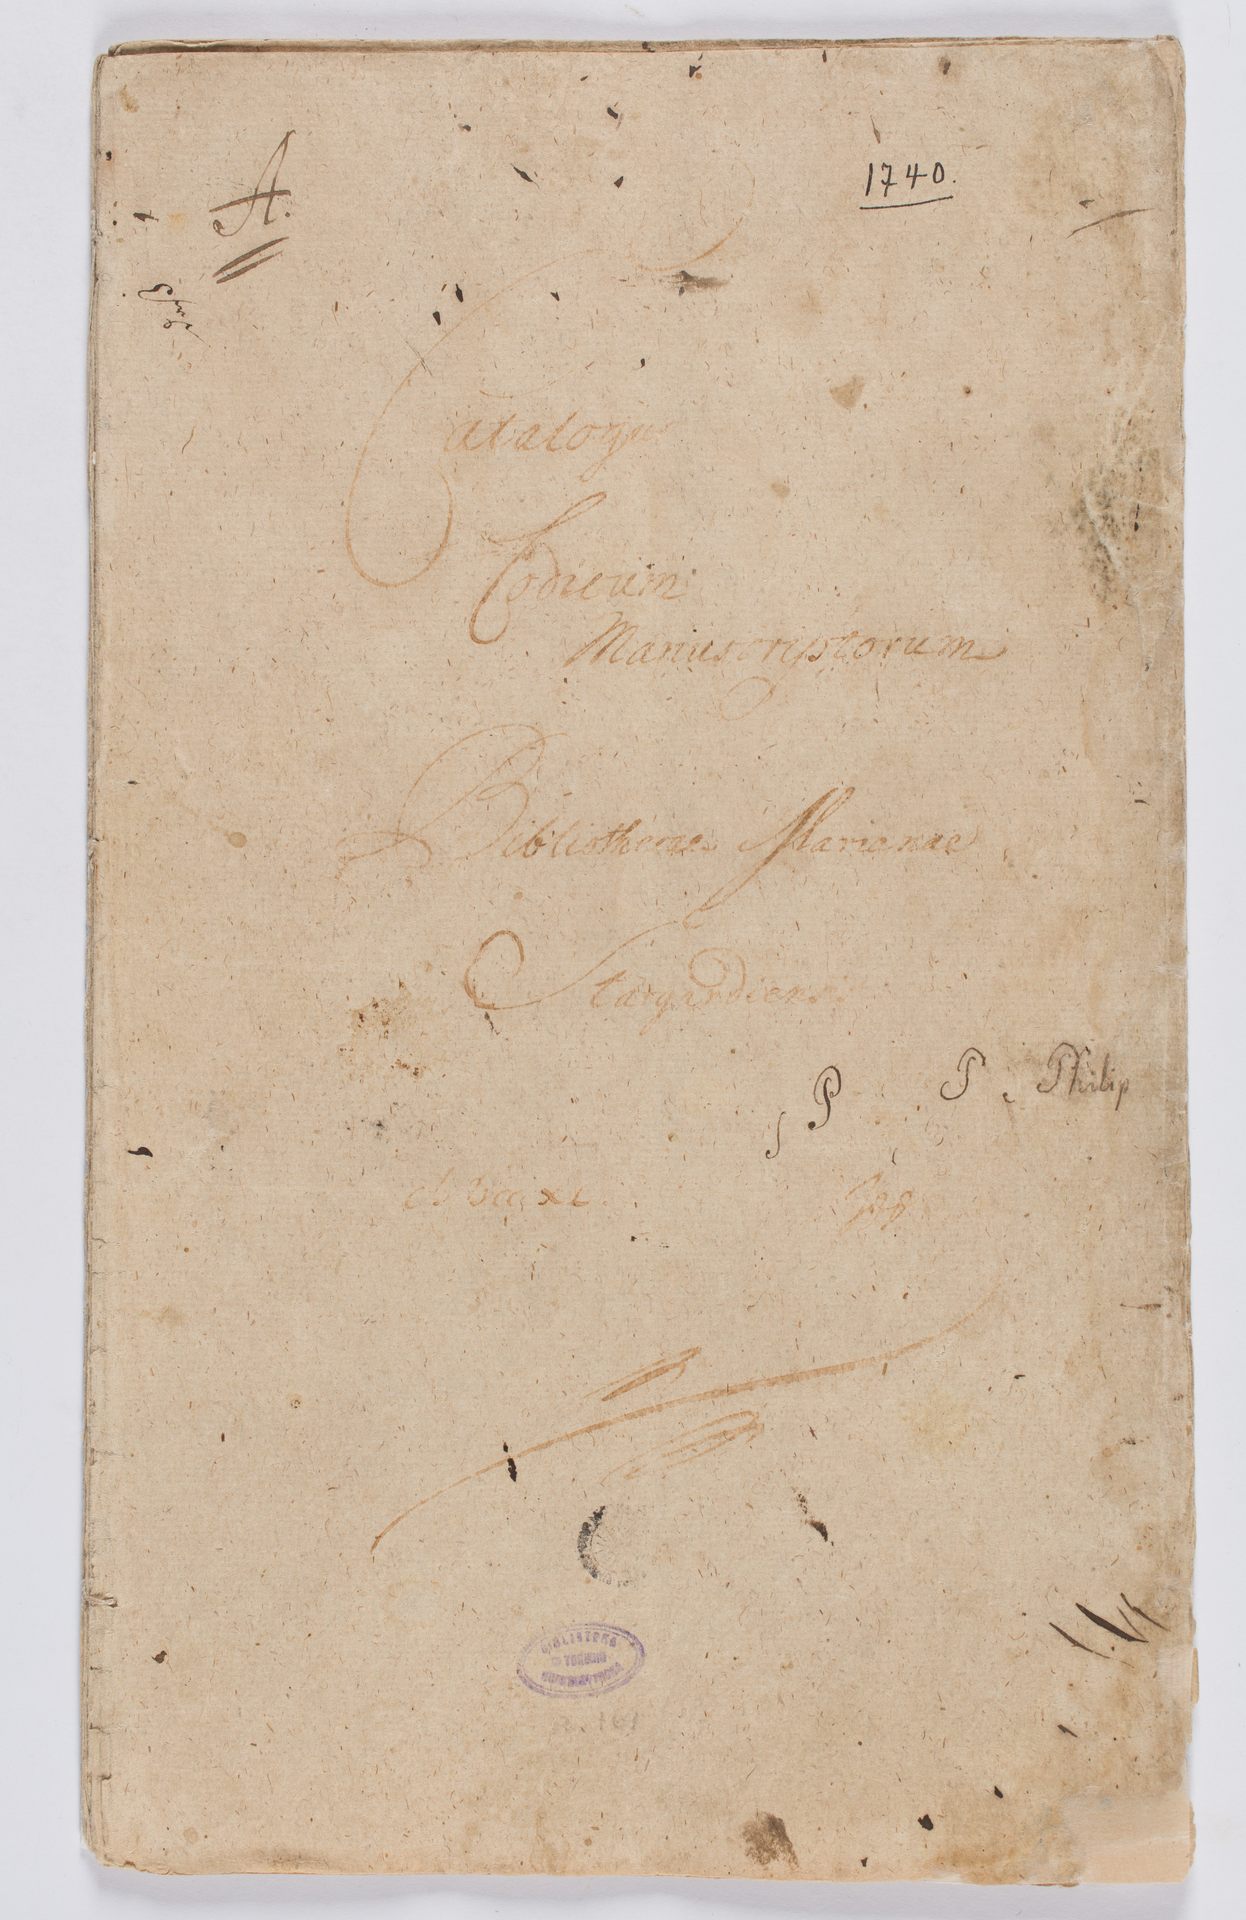 A.
1740.
Catalogus
Codicum
Manuscriptorum
Bibliothecae Marianae
Stargardiensis
P P Philip
BIBLIOTEKA
W TORUNIU